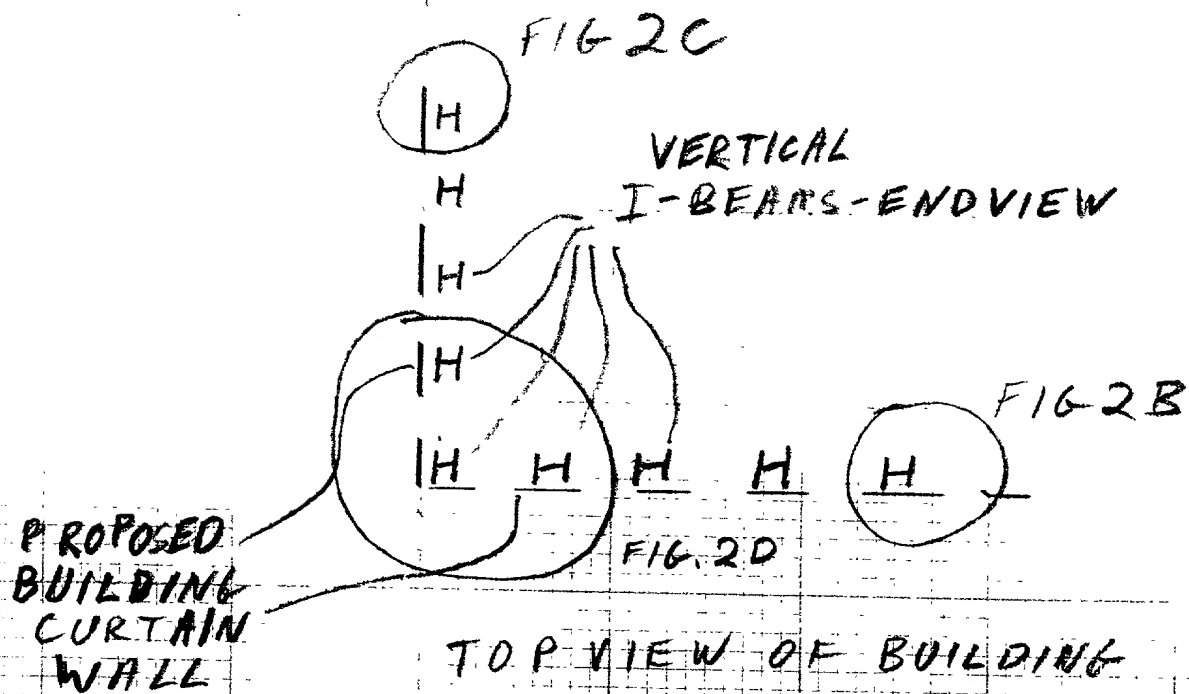 FIG 2C
H
VERTICAL
I-BEAMS-ENDVIEW
H
H
H
FIG 2B
H H H H H
PROPOSED
BUILDING
CURTAIN
WALL
FIG. 2D
TOP VIEW OF BUILDING